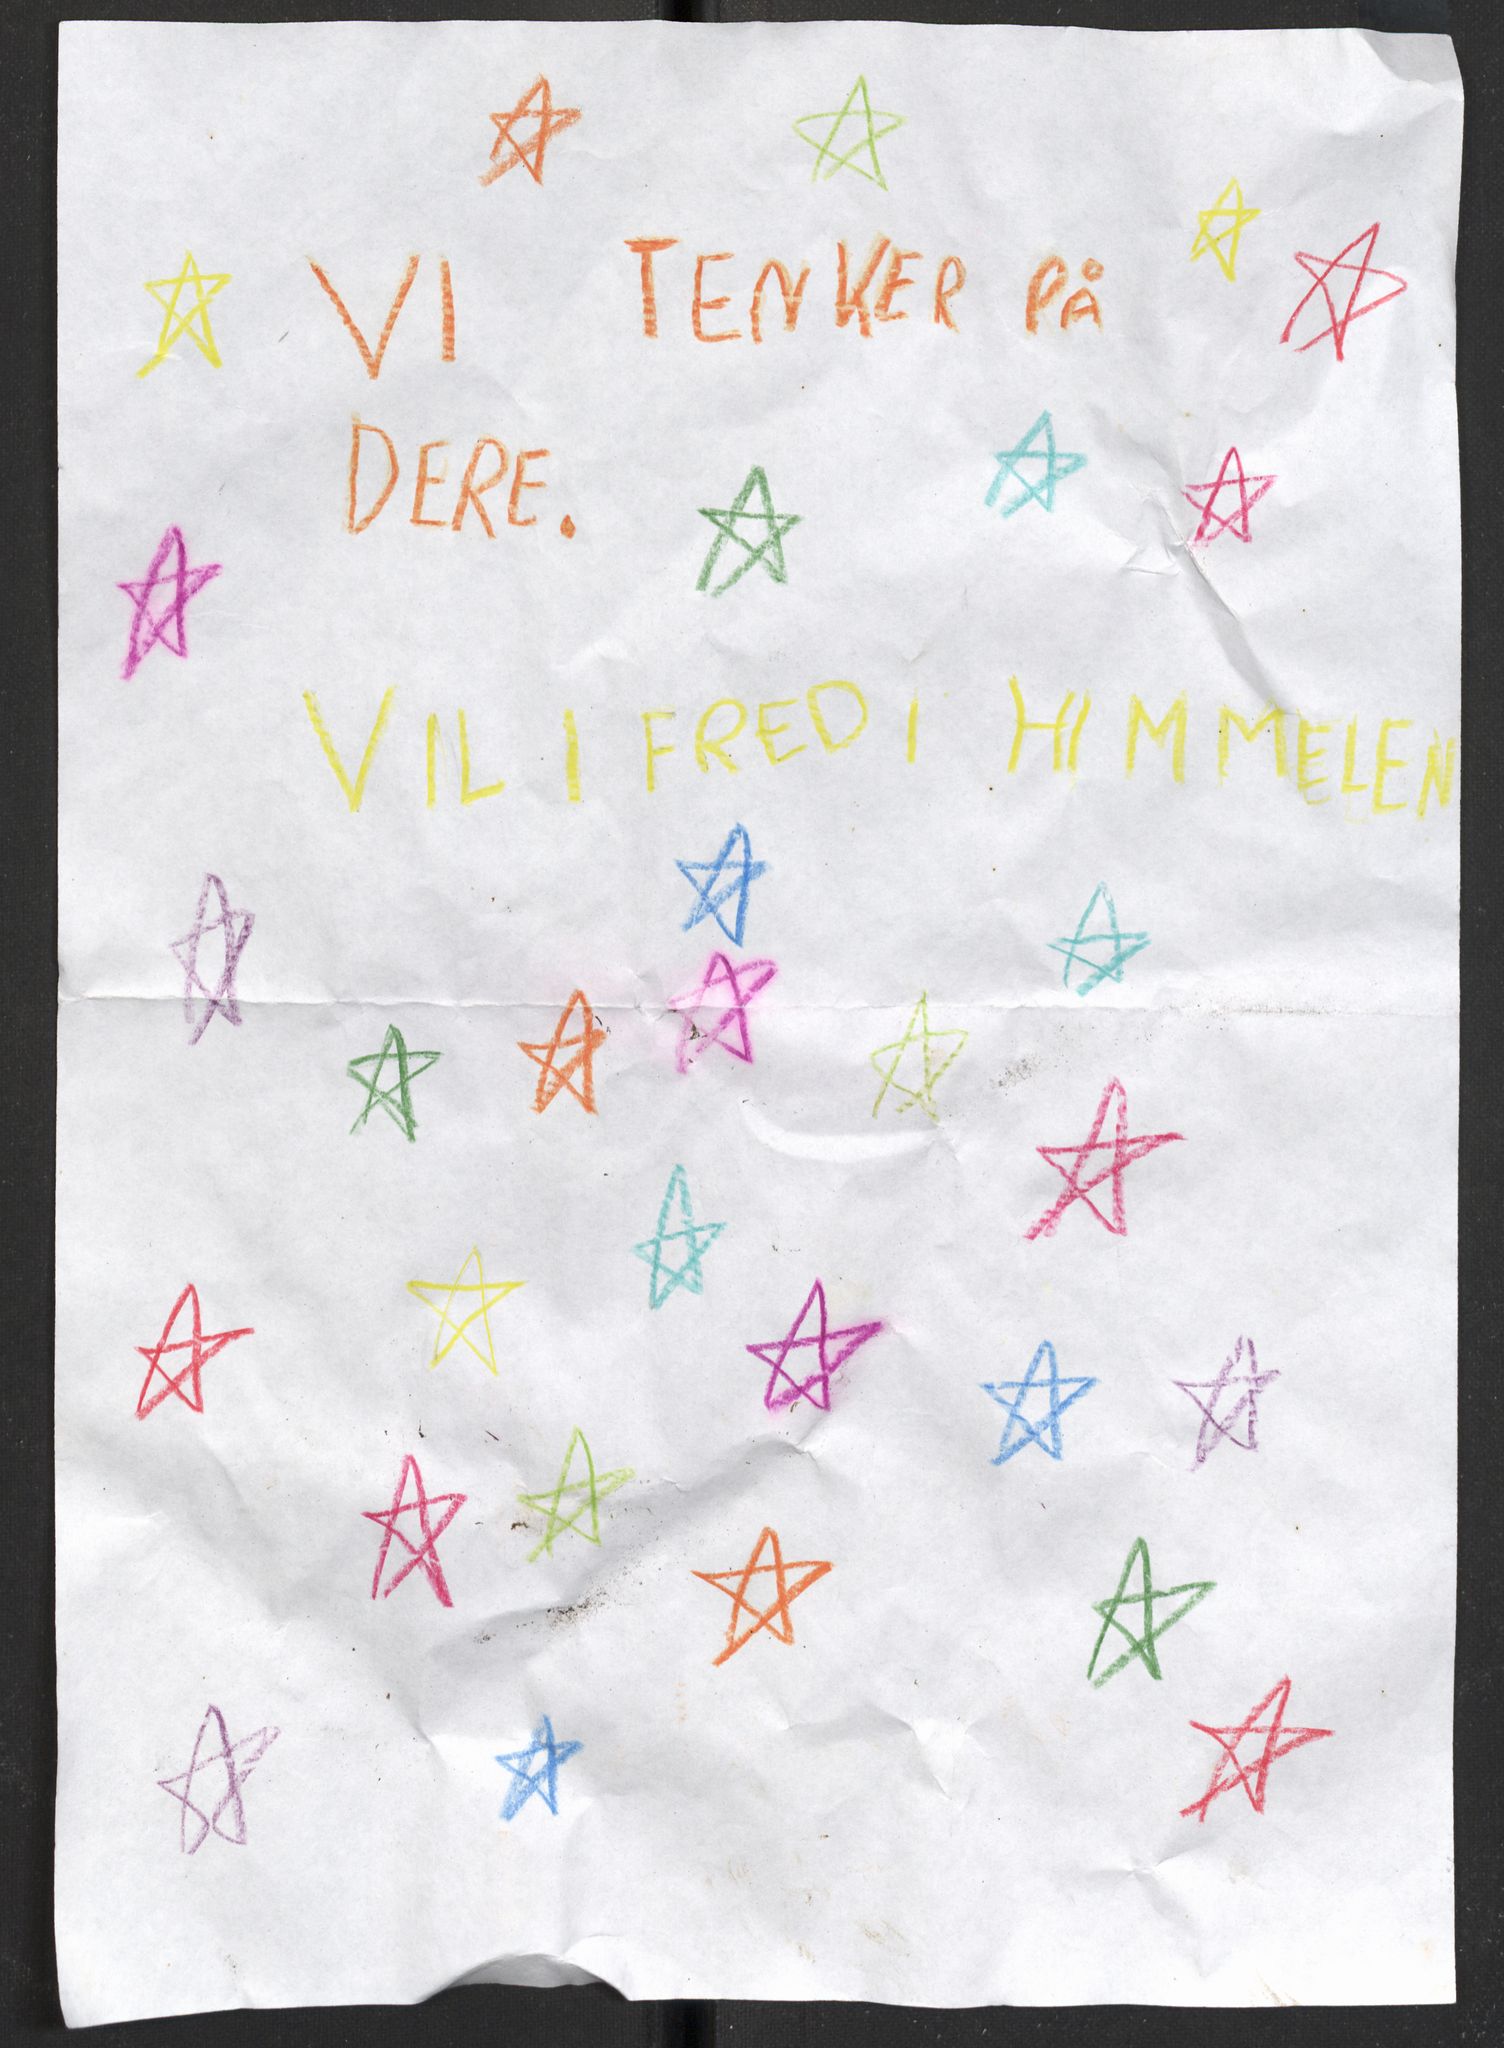 VI TENKER PÅ
DERE.
VIL I FRED I HIMMELEN